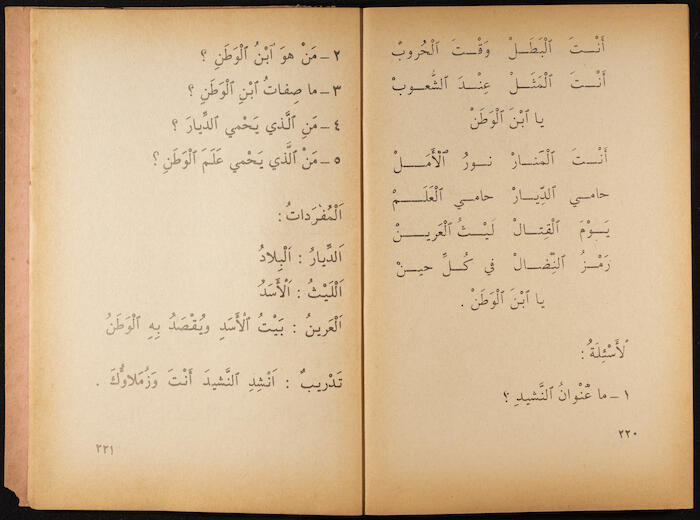 أَنْتَ الْبَطَلْ وَقْتَ الْحُروبْ
أَنْتَ الْمَثَلْ عِنْدَ الشُّعوبْ
يا ابْنَ الْوَطَنْ
أَنْتَ الْمَنارْ نورُ الْأَمَلْ
حامي الدِّيارْ حامي الْعَلَمْ
يَوْمَ الْقِتالْ لَيْثُ الْعَرينْ
رَمْزُ النِّضالْ في كُلِّ حينْ
يا ابْنَ الْوَطَنْ .
لأَسْئِلَةُ :
١ ـ ما عُنْوانُ النَّشيدِ ؟
٢٢٠
٢ ـ مَنْ هوَ ابْنُ الْوَطَنِ ؟
٣ ـ ما صِفاتُ ابْنِ الْوَطَنِ ؟
٤ ـ مَنِ الَّذي يَحْمي الدِّيارَ ؟
٥ ـ مَنْ الَّذي يَحْمي عَلَمَ الْوَطَنِ ؟
اَلْمُفْرَداتُ :
اَلدِّيارُ : اَلْبِلادُ
اَللَّيْثُ : اَلْأَسَدُ
اَلْعَرينُ : بَيْتُ الْأَسَدِ ويُقْصَدُ بِهِ الْوَطَنُ
تَدْريبٌ : اَنْشِدِ النَّشيدَ أَنْتَ وَزُمَلاوُكَ .
٢٢١